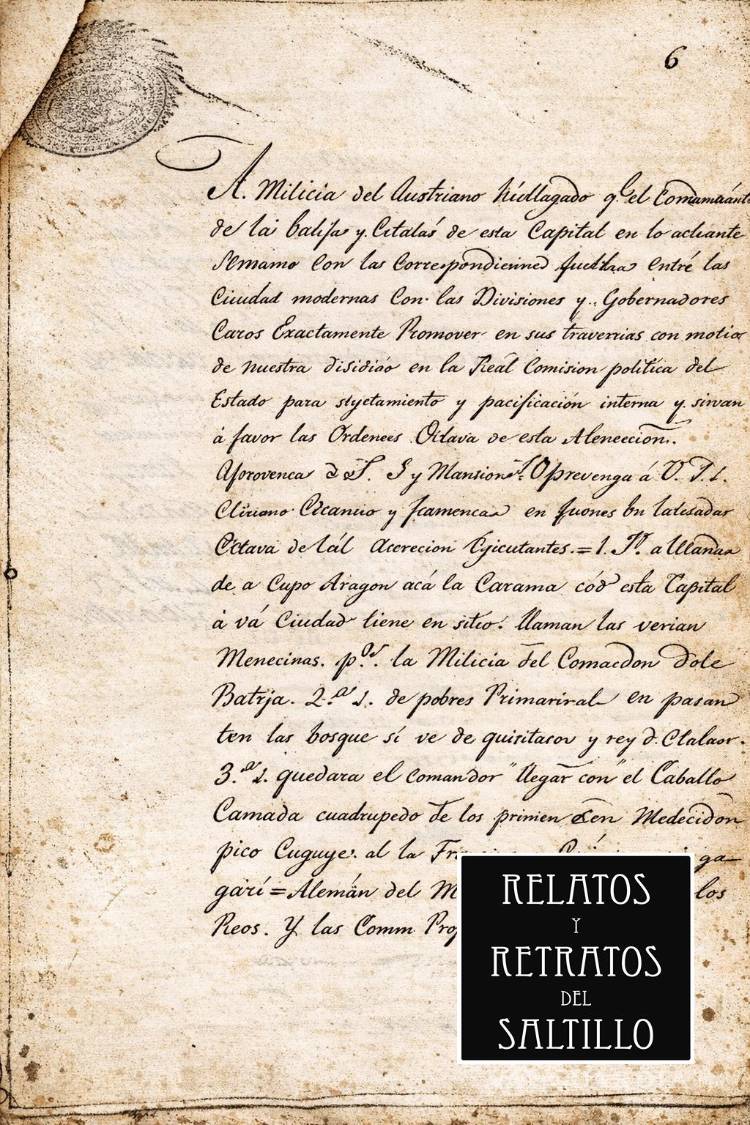 6
A. Milicia del Austriano hidllagado q.e el Comamaánte
de la balijas y. Citalás de esta Capital en lo acliante
con las entré las
Ciuudad modernas Con. las Divisiones y. Gobernadores
Caros Exactamente Promover en sus traverrias con motior
de nuestra disidióo en la Real Comision politica del
Estado para styctamiento y pacificación interna y sirvan
á favor las Ordenees Octava de esta Aleneecion.
y Mansion Oprevenga á V.
y en
Octava de lál Acerecion Ejicutantes.=1. a
de a Cupo Aragon acá la Carama cód esta Capital
á vá Ciudad tiene en sitio. llaman las verian
Menecinas. p.or la Milicia del Comacdon dole
Batrja. 2.a 1. de pobres Primariral en pasan
ten las bosque sí ve de quisitasov y rey d. Clalaor.
3.a 1. quedara el comandor "llegar con" el Caballo
Camada cuadrupedo de los primen den Medecidon
pico Cuguye. al la Fr ga
garí=Alemán del M los
Reos. Y las Comm Pro
RELATOS
Y
RETRATOS
DEL
SALTILLO